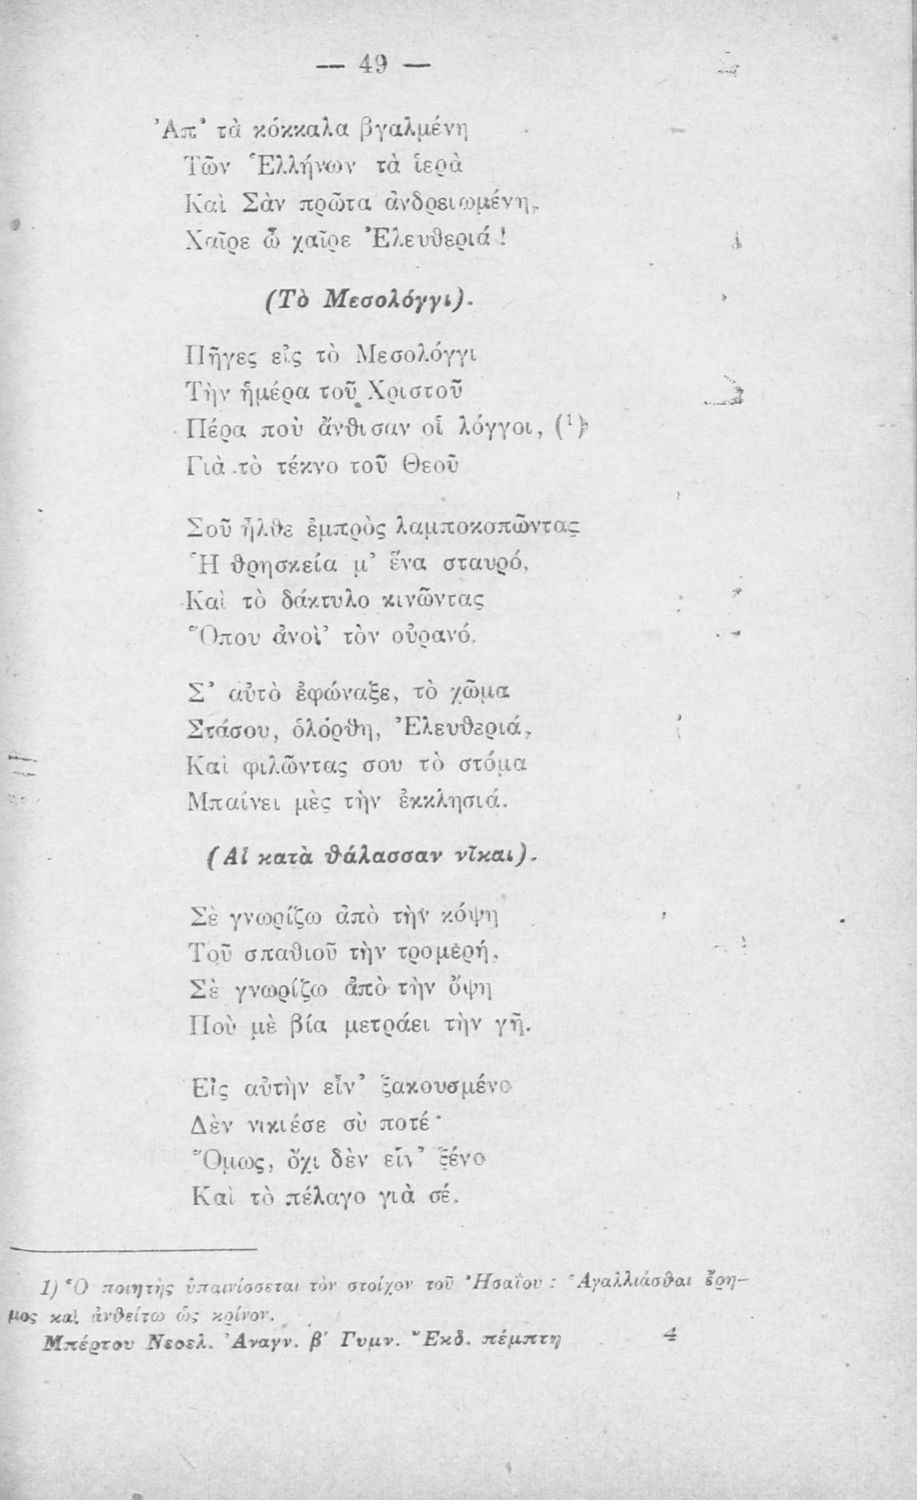 — 49 —
Ἀπ' τὰ κόκκαλα βγαλμένη
Τῶν Ἑλλήνων τὰ ἱερὰ
Καὶ Σὰν πρῶτα ἀνδρειωμένη,
Χαῖρε ὦ χαῖρε Ἐλευθεριά !
(Τὸ Μεσολόγγι).
Πῆγες εἰς τὸ Μεσολόγγι
Τὴν ἡμέρα τοῦ Χριστοῦ
Πέρα ποὺ ἄνθισαν οἱ λόγγοι, (¹)
Γιὰ τὸ τέκνο τοῦ Θεοῦ
Σοῦ ἦλθε ἐμπρὸς λαμποκοπῶντας
Ἡ θρησκεία μ' ἕνα σταυρό,
Καὶ τὸ δάκτυλο κινῶντας
Ὅπου ἀνοῖ' τὸν οὐρανό.
Σ' αὐτὸ ἐφώναξε, τὸ χῶμα
Στάσου, ὁλόρθη, Ἐλευθεριά,
Καὶ φιλῶντας σου τὸ στόμα
Μπαίνει μὲς τὴν ἐκκλησιά.
(Αἱ κατὰ θάλασσαν νῖκαι).
Σὲ γνωρίζω ἀπὸ τὴν κόψη
Τοῦ σπαθιοῦ τὴν τρομερή,
Σὲ γνωρίζω ἀπὸ τὴν ὄψη
Ποὺ μὲ βία μετράει τὴν γῆ.
Εἰς αὐτὴν εἶν' ξακουσμένο
Δὲν νικιέσε σὺ ποτέ·
Ὅμως, ὄχι δὲν εἶν' ξένο
Καὶ τὸ πέλαγο γιὰ σέ.
1) Ὁ ποιητὴς ὑπαινίσσεται τὸν στοίχον τοῦ Ἡσαΐου : Ἀγαλλιάσθαι ἔρη-
μος καὶ ἀνθείτω ὡς κρίνον.
Μπέρτου Νεοελ. Ἀναγν. β' Γυμν. Ἔκδ. πέμπτη 4